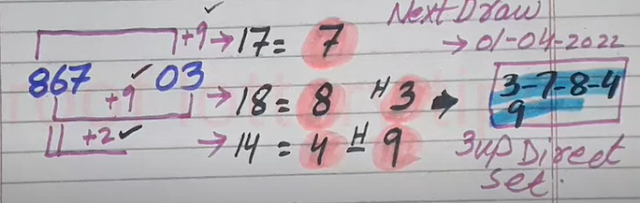 Next Draw
+9 ✓ → 17 = 7 → 01-04-2022
867 ✓ 03
+9 → 18 = 8 H 3 → 3-7-8-4
9
+2 ✓ → 14 = 4 H 9 3up Direct
Set.